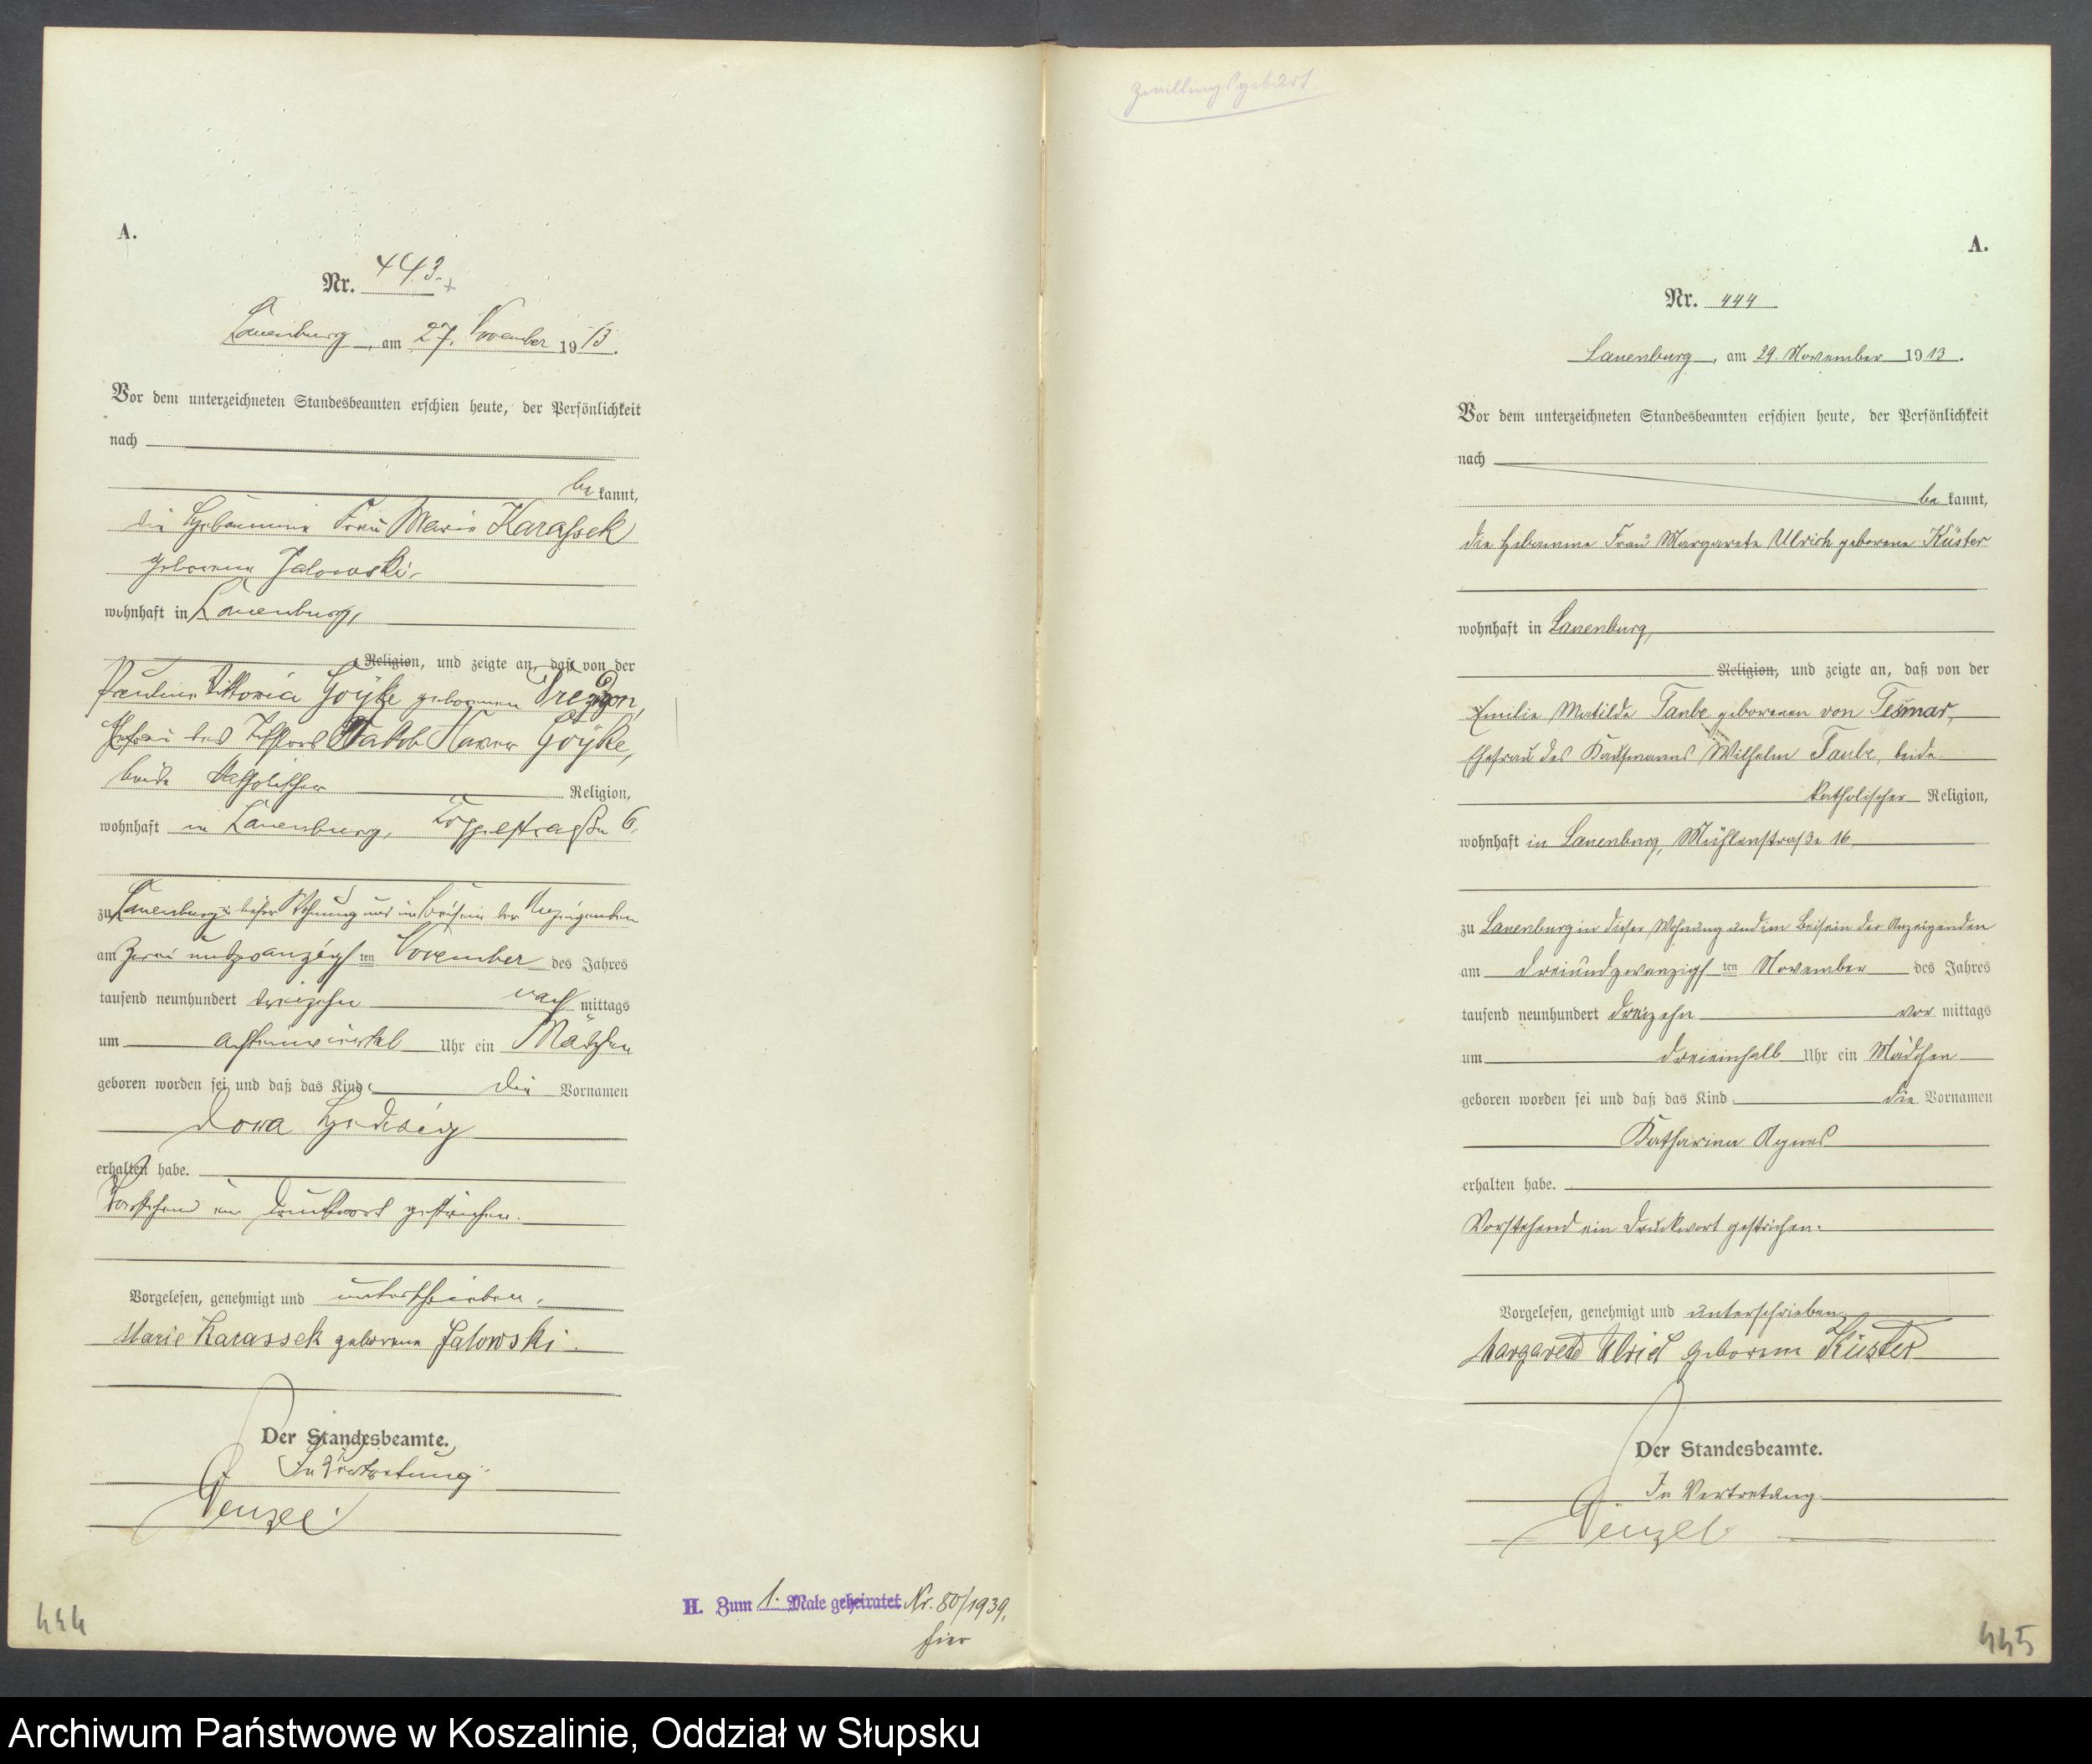 A.
Nr. 443.
Lauenburg, am 27. November 1913.
Vor dem unterzeichneten Standesbeamten erschien heute, der Persönlichkeit
nach
be kannt,
die Hebamme Frau Marie Karassek
geborene Jalowski,
wohnhaft in Lauenburg,
Religion, und zeigte an, daß von der
Pauline Viktoria Goÿke geborenen
Ehefrau des Jakob Goÿke,
beide katholischer Religion,
wohnhaft in Lauenburg, 6,
zu Lauenburg in dieser Wohnung und im Beisein der Anzeigenden
am zweiundzwanzigsten November des Jahres
tausend neunhundert dreizehn nachmittags
um achteinviertel Uhr ein Mädchen
geboren worden sei und daß das Kind die Vornamen
Dora Hedwig
erhalten habe.
Vorstehend ein Druckwort gestrichen.
Vorgelesen, genehmigt und unterschrieben.
Marie Karassek geborene Jalowski.
Der Standesbeamte.
In Vertretung.
Wenzel.
444
H. Zum 1. Male geheiratet Nr. 80/1939,
hier
Zwillingsgeburt
A.
Nr. 444
Lauenburg, am 29. November 1913.
Vor dem unterzeichneten Standesbeamten erschien heute, der Persönlichkeit
nach
be kannt,
die Hebamme Frau Margarete Ulrich geborene Küster
wohnhaft in Lauenburg,
Religion, und zeigte an, daß von der
Emilie Matilde Taube geborenen von Tesmar,
Ehefrau des Kaufmanns Wilhelm Taube, beide
katholischer Religion,
wohnhaft in Lauenburg, Mühlenstraße 16,
zu Lauenburg in dieser Wohnung und im Beisein der Anzeigenden
am dreiundzwanzigsten November des Jahres
tausend neunhundert dreizehn vormittags
um dreieinhalb Uhr ein Mädchen
geboren worden sei und daß das Kind die Vornamen
Katharina Agnes
erhalten habe.
Vorstehend ein Druckwort gestrichen.
Vorgelesen, genehmigt und unterschrieben
Margarete Ulrich geborene Küster
Der Standesbeamte.
In Vertretung.
Wenzel.
445
Archiwum Państwowe w Koszalinie, Oddział w Słupsku